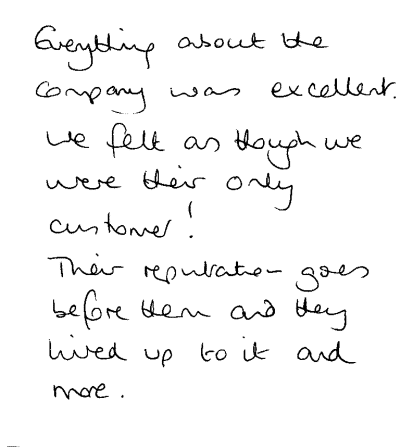 Everything about the
company was excellent.
We felt as though we
were their only
customer!
Their reputation goes
before them and they
lived up to it and
more.